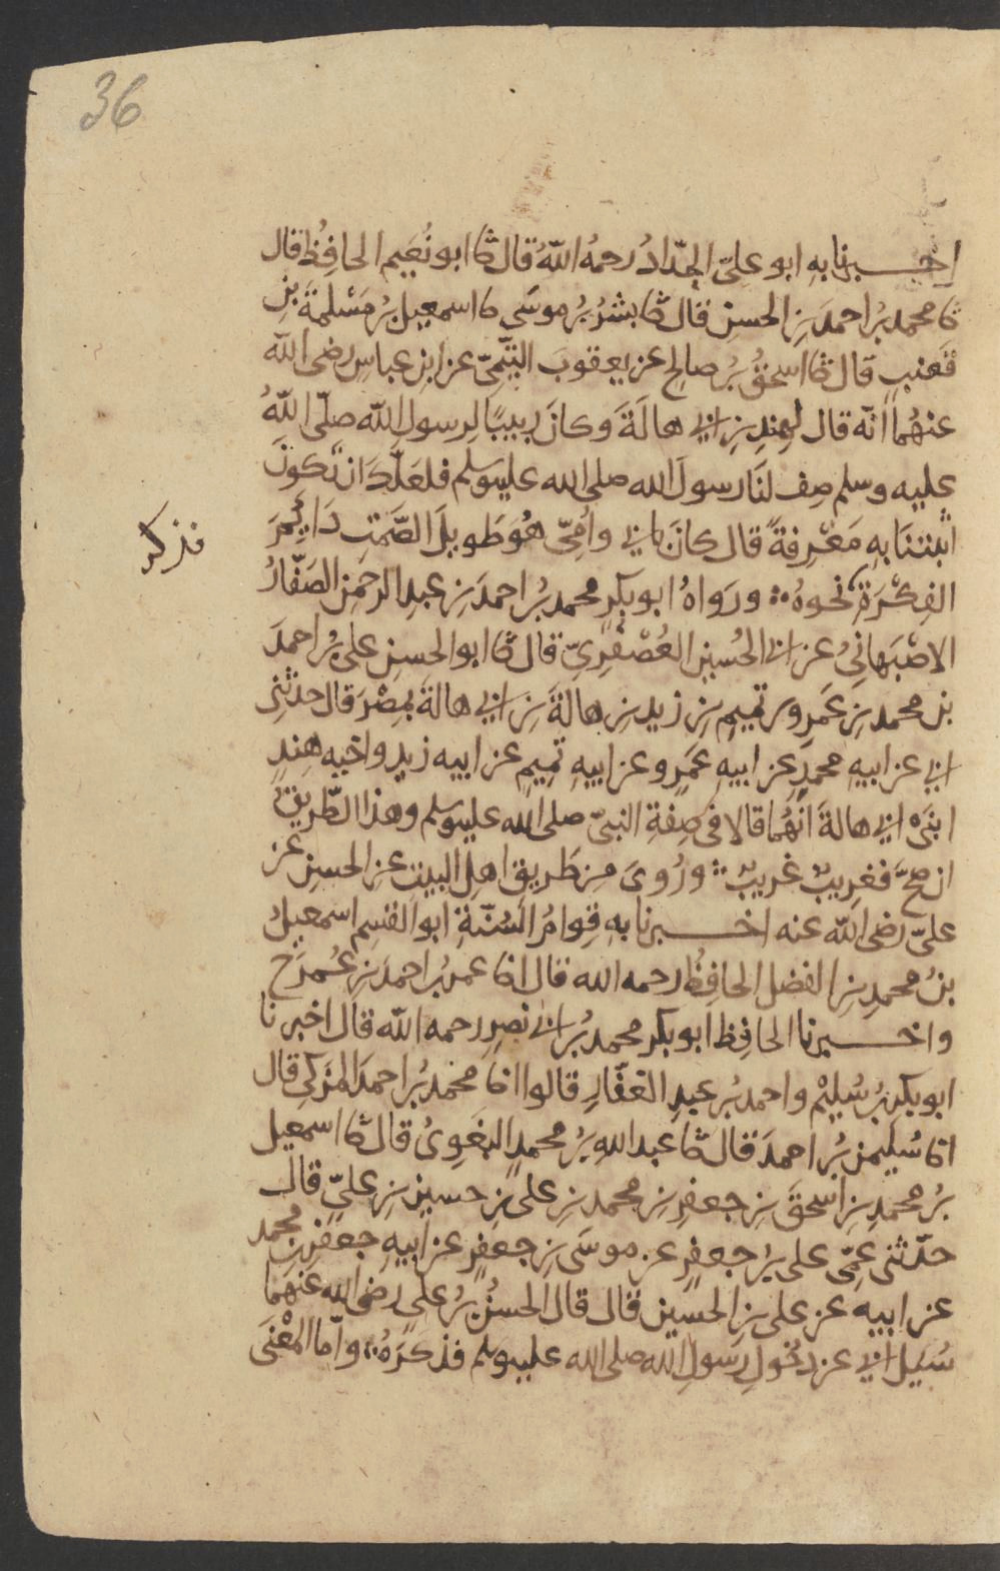 36
اخبرنا به ابو عليّ الحدّادُ رحمهُ اللّهُ قال ثنا ابو نُعَيم الحافِظُ قال
ثنا محمد بنُ احمدَ بنِ الحسن قال ثنا بشرُ بنُ موسَى ثنا اسمعيل بنُ مَسْلمةَ بنِ
قَعنبٍ قال ثنا اسحقُ بنُ صالحٍ عن يعقوبَ التيْمِيّ عن ابن عباسٍ رضى اللّه
عنهُما انّه قال لهندِ بنِ ابي هالَةَ وكانَ ربيبًا لرسولِ اللّه صلّى اللّهُ
عليه وسلم صِف لنَا رسولَ الله صلى الله عليه وسلم فلعَلّكَ ان تكونَ
اثبتنَا بهِ مَعْرِفةً قال كانَ بابي وامِّي هُوَ طويلَ الصَّمتِ دَايِمَ
فذكر
الفِكْرَةِ نحوهُ ⁘ ورَواهُ ابو بكرٍ محمد بنُ احمدَ بنِ عبدِ الرحمن الصَفّارُ
الاصْبَهانِيُ عن ابي الحُسين العُصْفُرِيّ قال ثنا ابو الحسن علىّ بنُ احمدَ
بن محمد بنِ عَمرِو بن تميمِ بنِ زيد بنِ هالةَ بنِ ابي هالةَ بمِصْرَ قال حدثنى
ابي عن ابيهِ محمدٍ عن ابيهِ عَمرٍو عن ابيهِ تميمٍ عن ابيه زيدٍ واخيه هِندٍ
ابنَىْ ابي هالةَ انّهُما قالا فى صِفةِ النبىّ صلى الله عليه وسلم وهذا الطّريقُ
ان صحَّ فغريبٌ غريبٌ ⁘ ورُوىَ من طَريقِ اهلِ البيتِ عن الحسنِ عن
علىّ رضى اللّه عنه اخبرنا بهِ قِوامُ السُنّةِ ابو القسِم اسمعيلُ
بنُ محمدِ بنِ الفضل الحافِظُ رحمه الله قال انا عمر بُن احمدَ بنِ عُمرَ ح
واخبرنا الحافِظ ابو بكر محمد بنُ ابي نصرٍ رحمه اللّه قال اخبرنا
ابو بكر بنُ سُليْم واحمد بنُ عبدِ الغفّارِ قالوا انا محمد بنُ احمدَ المزكي قال
انا سُليمن بنُ احمدَ قال ثنا عبد اللهِ بنُ محمدٍ البغَوِىُ قال ثنا اسمعيل
بنُ محمدِ بنِ اسحقَ بنِ جعفرِ بنِ محمد بنِ على بنِ حسين بنِ علىّ قال
حدّثنى عمِّى على بنُ جعفرٍ عن موسَى بنِ جعفرٍ عن ابيهِ جعفرِ بن محمد
عن ابيه عن على بنِ الحسين قال قال الحسنُ بنُ علىٍ رضى الله عنهما
سُئيل ابي عن دُخولِ رسولِ الله صلى الله عليه وسلم فذكرهُ ⁘ وامّا المعْنَى